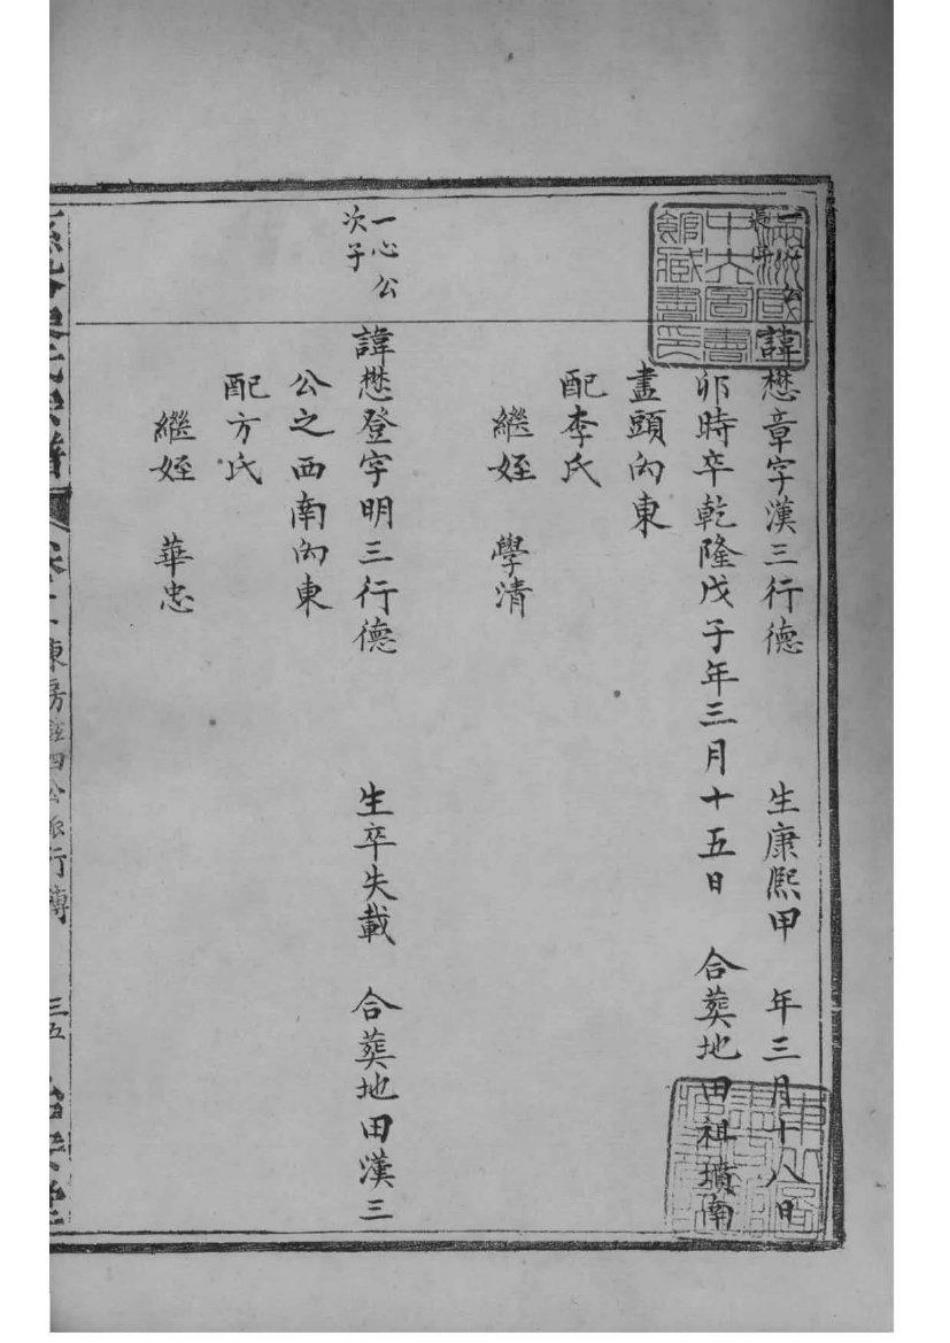 諱懋章字漢三行德 生康熙甲 年三月十八日
卯時卒乾隆戊子年三月十五日 合葬地田祖墳南
盡頭向東
配李氏
繼姪 學清
一心公
次子
諱懋登字明三行德 生卒失載 合葬地田漢三
公之西南向東
配方氏
繼姪 華忠
東房 四公派行傳 三五